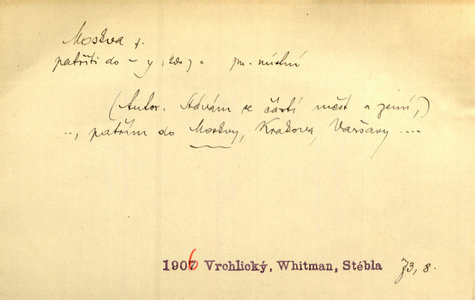 Moskva f.
patřiti do – y (kdo) = jm. místní
(Autor: Stávám se částí měst a zemí,)
.., patřím do Moskvy, Krakova, Varšavy ....
1906 Vrchlický, Whitman, Stébla 73, 8.